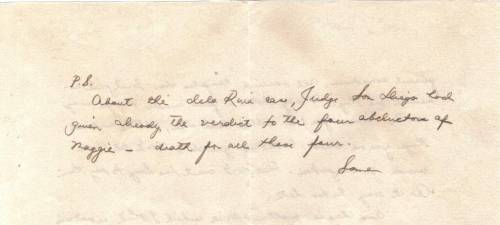 P.S.
About the dela Riva case, Judge San Diego had
given already the verdict to the four abductors of
Maggie – death for all these four.
Same